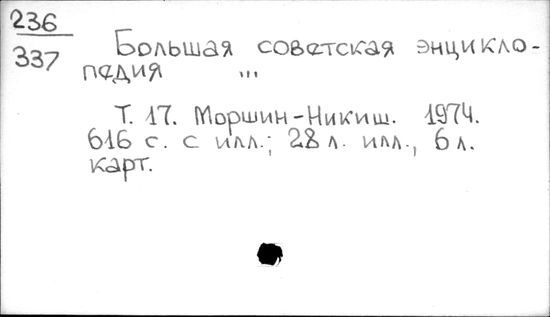 236
337
Большая советская энцикло-
педия ...
Т. 17. Моршин-Никиш. 1974.
616 с. с илл.; 28 л. илл., 6 л.
карт.